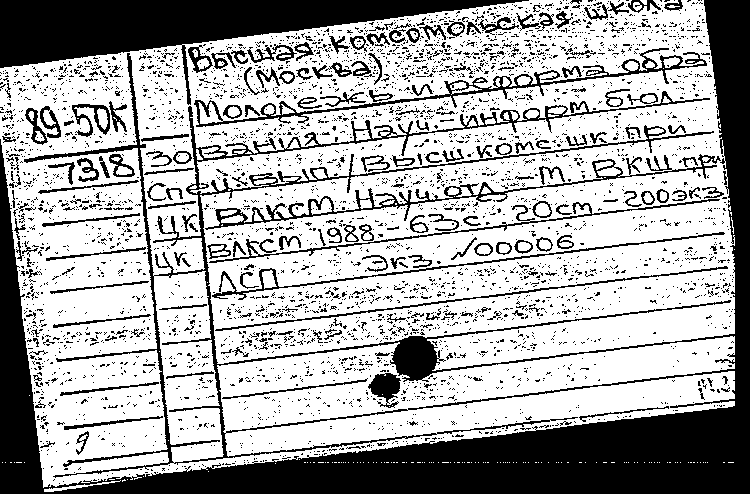 Высшая комсомольская школа
(Москва).
89-50К
7318
Молодежь и реформа обра
зования: Науч.-информ. бюл.
Спец. вып. / Высш. комс. шк. при
ЦК ВЛКСМ. Науч. отд. - М.: ВКШ при
ЦК ВЛКСМ, 1988. - 63 с.; 20 см. - 200 экз
ДСП Экз. №00006.
9